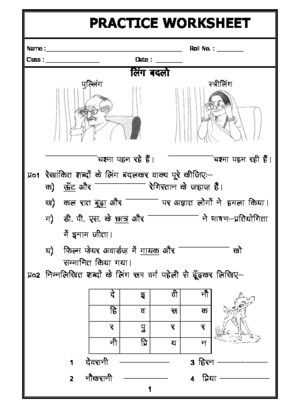 PRACTICE WORKSHEET
Name : Roll No. :
Class : Date :
लिंग बदलो
पुल्लिंग स्त्रीलिंग
चश्मा पहन रहे हैं। चश्मा पहन रही हैं।
प्र०1 रेखांकित शब्दों के लिंग बदलकर वाक्य पूरे कीजिए:–
क) ऊँट और रेगिस्तान के जहाज हैं।
ख) कल रात बूढ़ा और पर अज्ञात लोगों ने हमला किया।
ग) डी. पी. एस. के छात्र और ने भाषण–प्रतियोगिता
में इनाम जीता।
घ) फिल्म फेयर अवार्डज में गायक और को
सम्मानित किया गया।
प्र०2 निम्नलिखित शब्दों के लिंग रूप वर्ग पहेली से ढूँढकर लिखिए–
दे इ वी नौ
हि व स क
र पु र र
नी प्रि य न
1 देवरानी 3 हिरन
2 नौकरानी 4 प्रिया
1